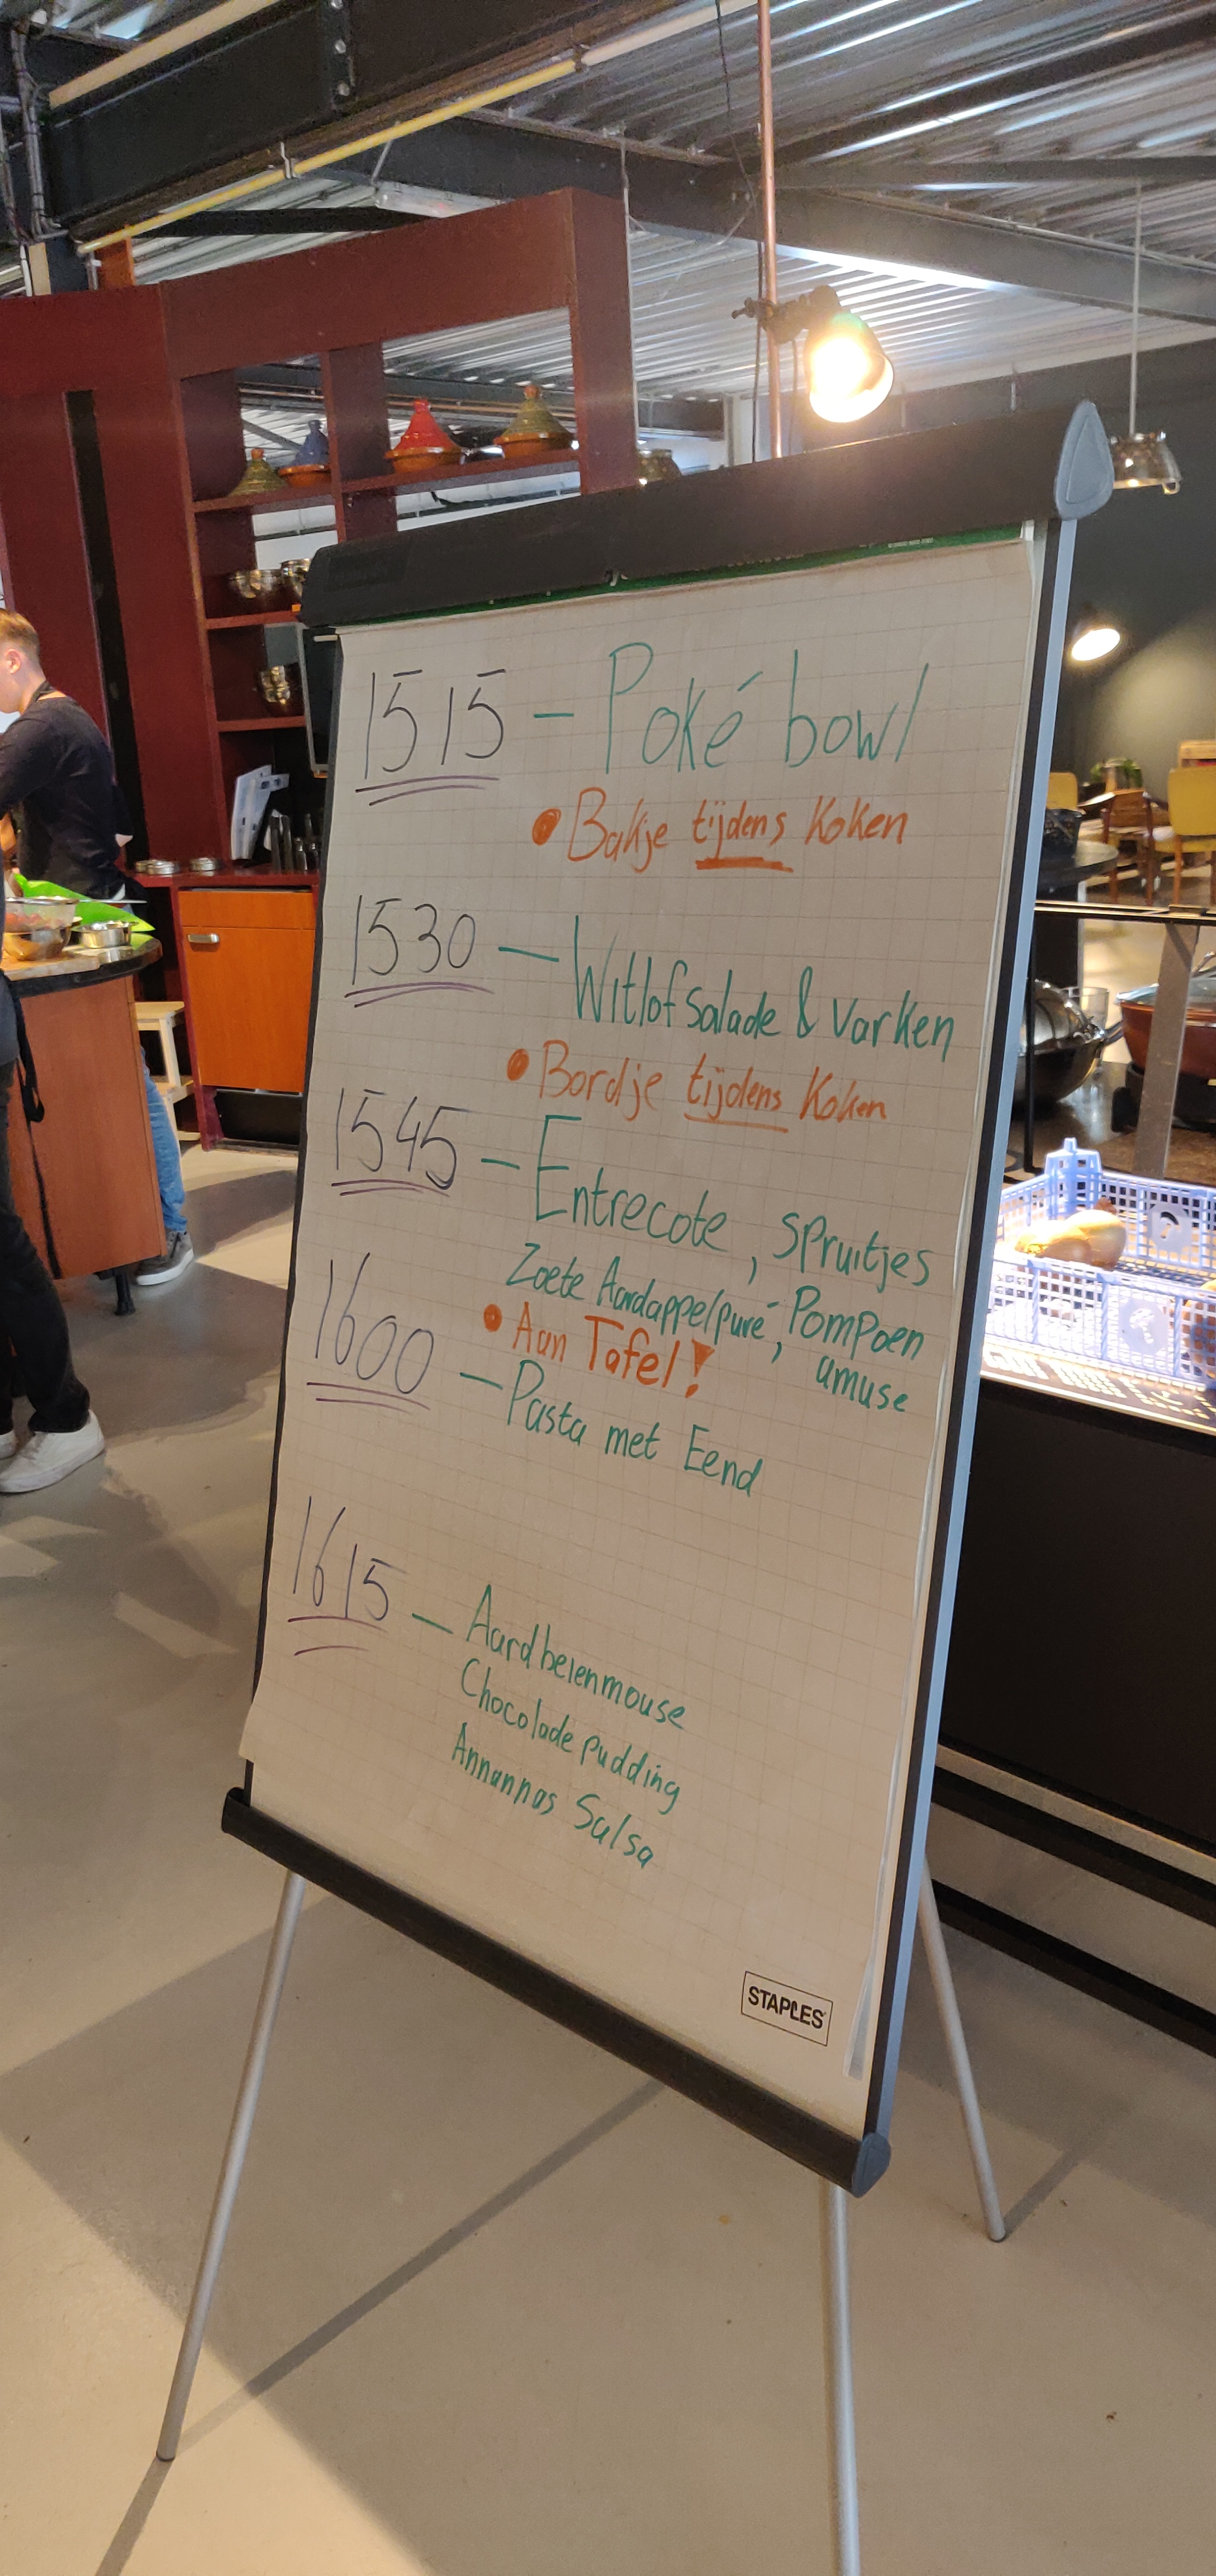 1515 - Poké bowl
• Bakje tijdens Koken
1530 - Witlofsalade & varken
• Bordje tijdens Koken
1545 - Entrecote, spruitjes
Zoete Aardappelpuré, Pompoen
amuse
• Aan Tafel!
1600 - Pasta met Eend
1615 - Aardbeienmouse
Chocolade pudding
Annannas Salsa
STAPLES